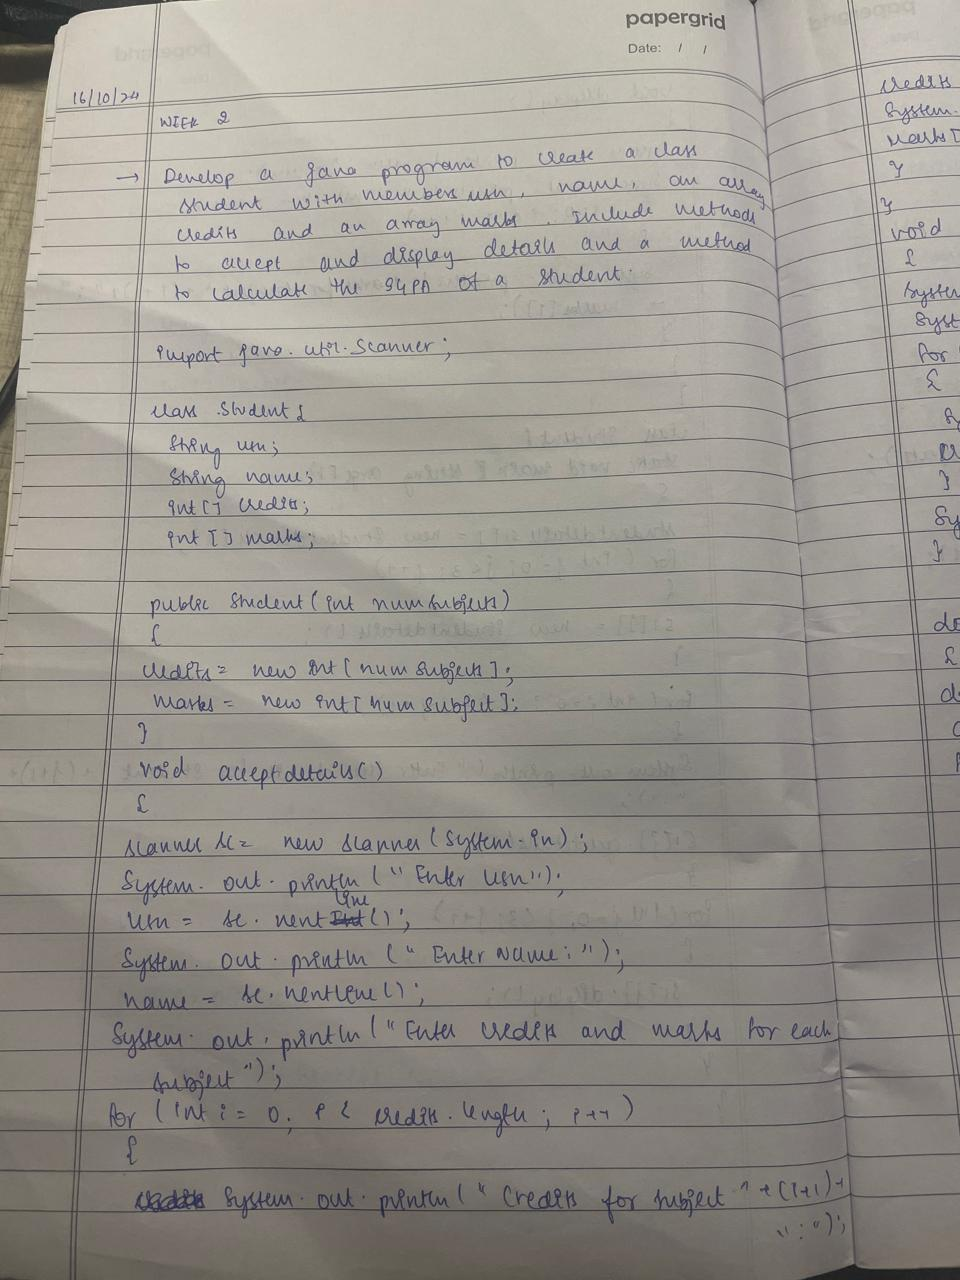 papergrid
Date: / /
16/10/24
WEEK 2
→ Develop a Java program to create a class
student with members usn, name, an array
credits and an array marks. Include methods
to accept and display details and a method
to calculate the SGPA of a student.
import java.util.Scanner;
class Student {
String usn;
String name;
int [] credits;
int [] marks;
public Student (int numsubjects)
{
credits = new int [num subjects];
marks = new int [num subject];
}
void acceptdetails()
{
Scanner sc = new Scanner (System.in);
System.out.println (" Enter Usn");
usn = sc.nextLine();
System.out.println (" Enter Name: ");
name = sc.nextLine();
System.out.println ("Enter credits and marks for each
subject ");
for (int i = 0; i < credits.length; i++)
{
System.out.println (" Credits for subject " + (i+1) +
" : ");
credits
System.
marks [
}
}
void
{
System
Syst
for
{
S
}
Sy
}
do
{
d